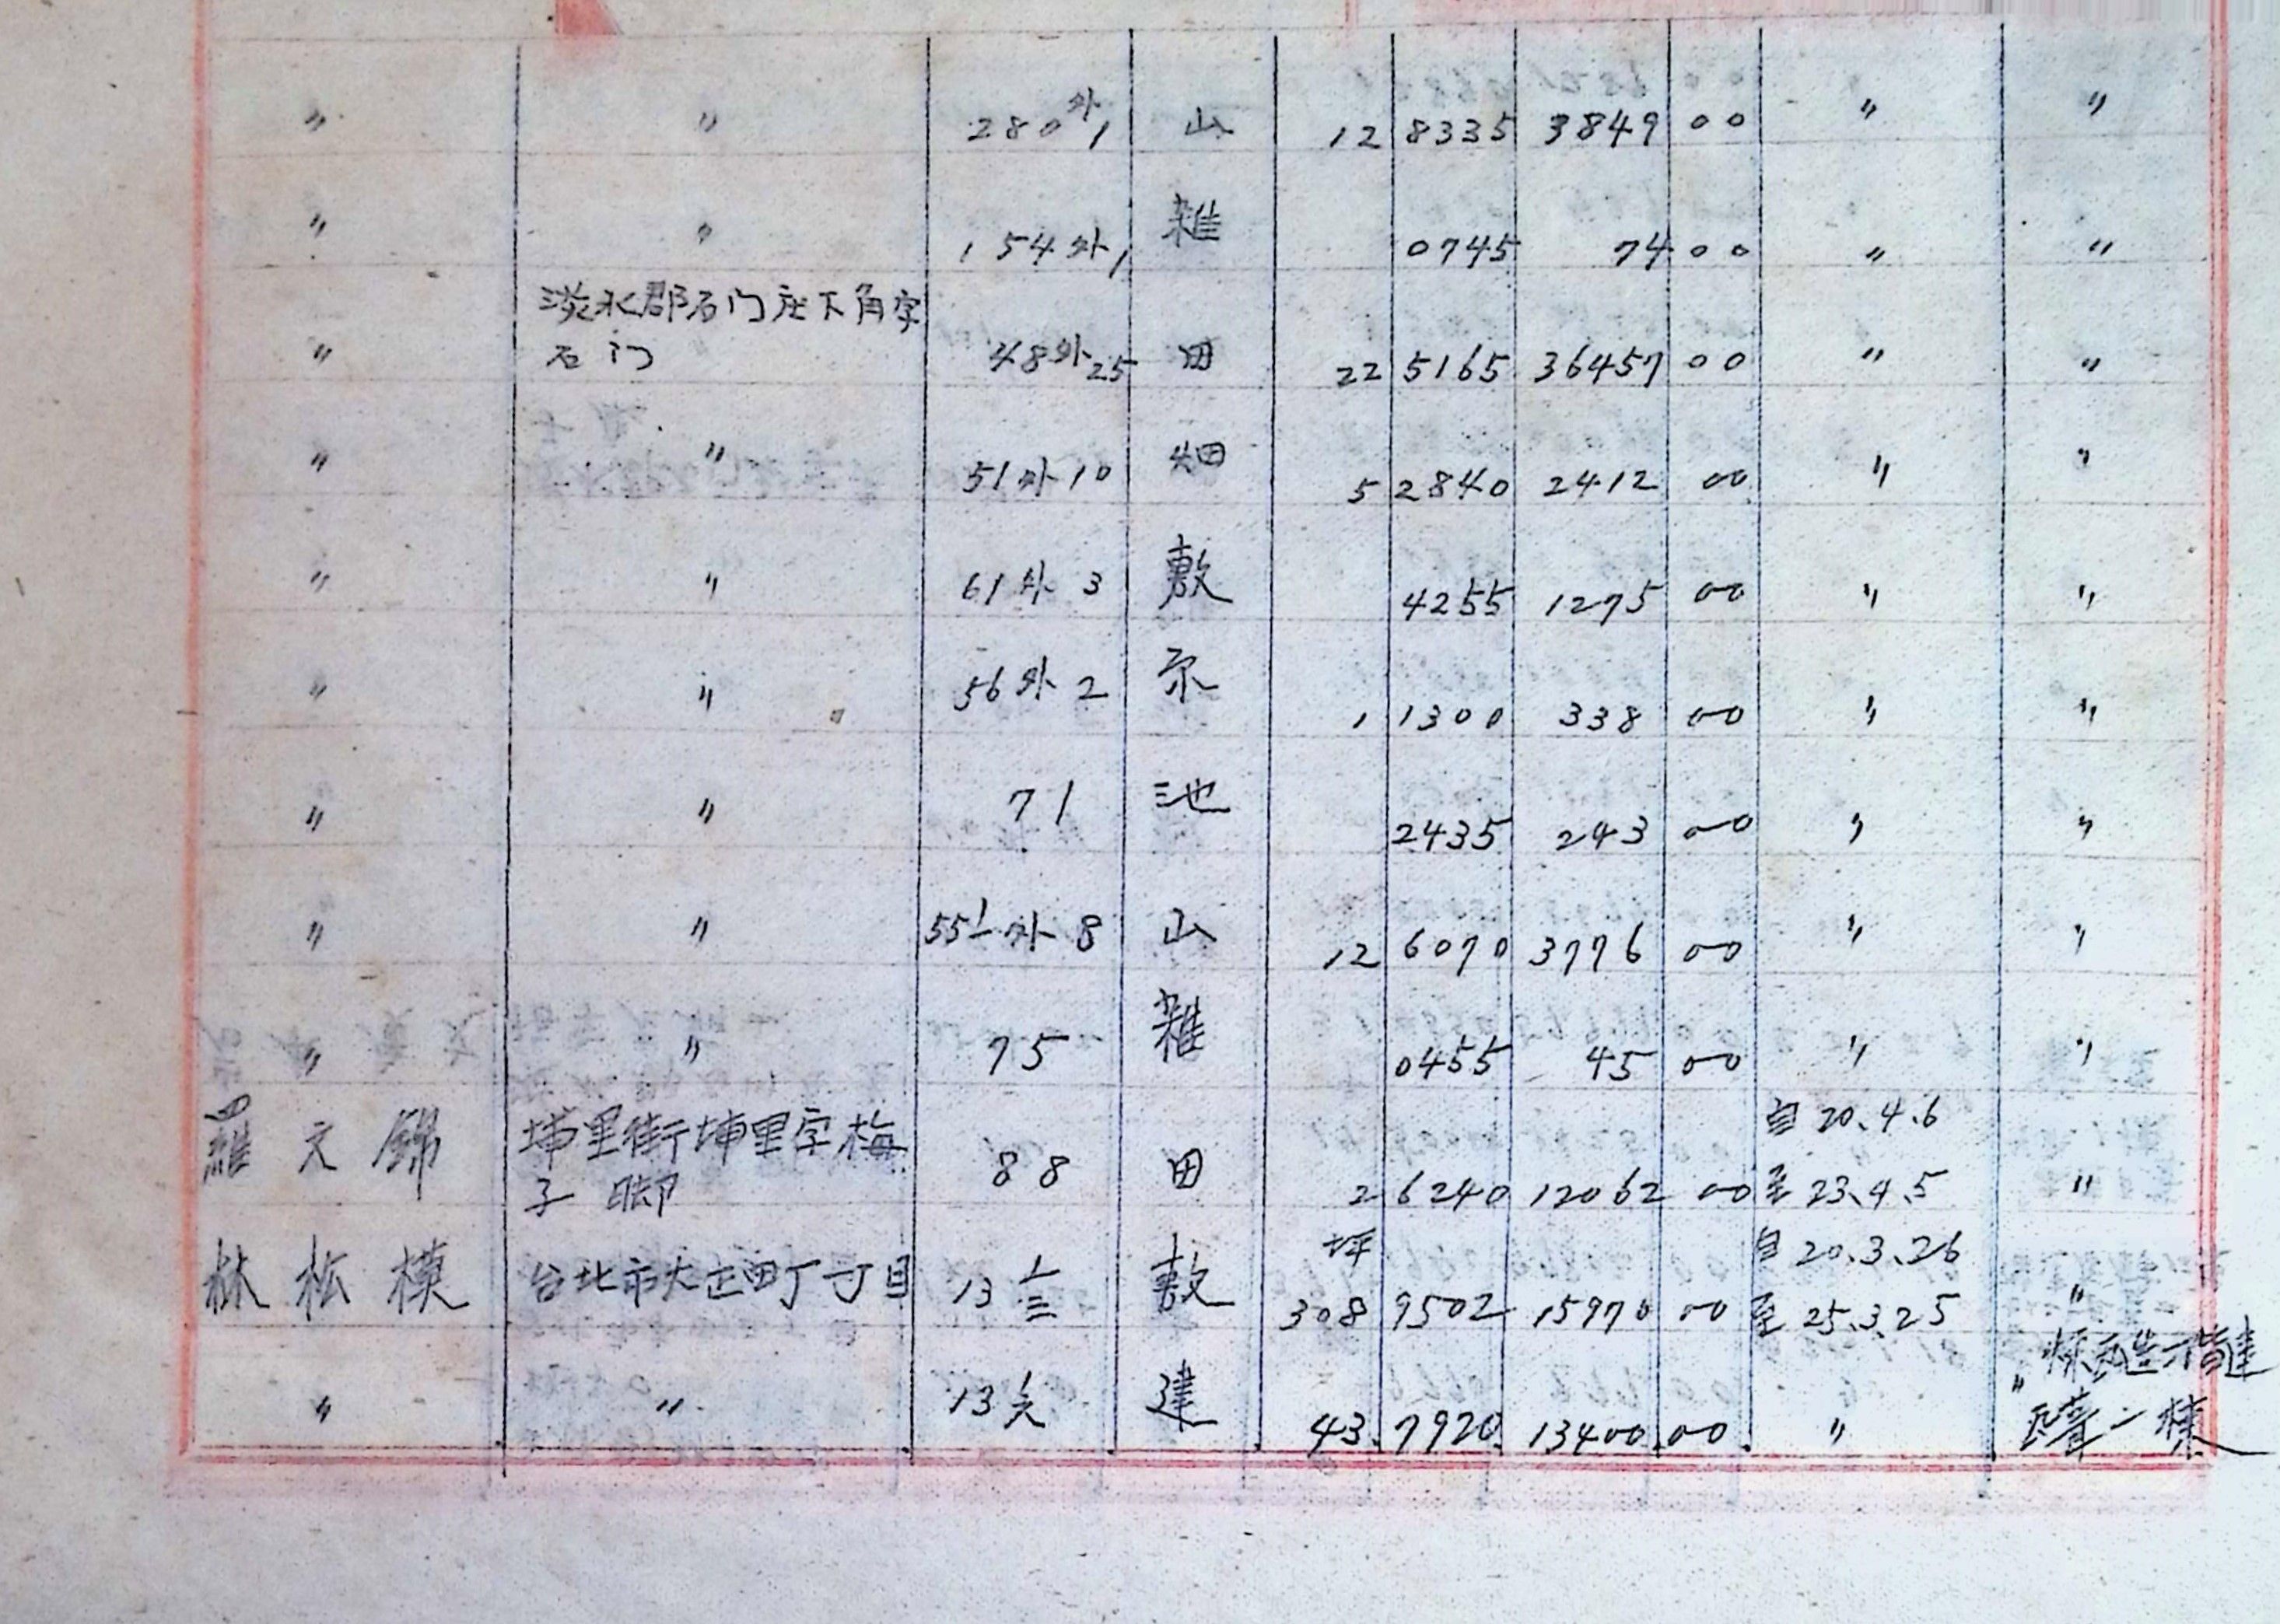 〃 〃 280外1 山 12 8335 3849 00 〃 〃
〃 〃 154外1 雑 0745 74 00 〃 〃
淡水郡石门庄下角字
〃 石门 48外25 田 22 5165 36457 00 〃 〃
〃 〃 51外10 畑 5 2840 2412 00 〃 〃
〃 〃 61外3 敷 4255 1275 00 〃 〃
〃 〃 56外2 原 1 1300 338 00 〃 〃
〃 〃 71 池 2435 243 00 〃 〃
〃 〃 55 1/1 外8 山 12 6070 3776 00 〃 〃
〃 〃 75 雑 0455 45 00 〃 〃
自 20.4.6
羅文錦 埔里街埔里字梅 88 田 2 6240 12062 00 至 23.4.5 〃
子脚
坪 自 20.3.26
林松模 台北市大正町一丁目 13 敷 308 9502 15970 00 至 25.3.25 〃
煉瓦造二階建
〃 〃 13 建 43.7920 13400.00 〃 〃 一棟